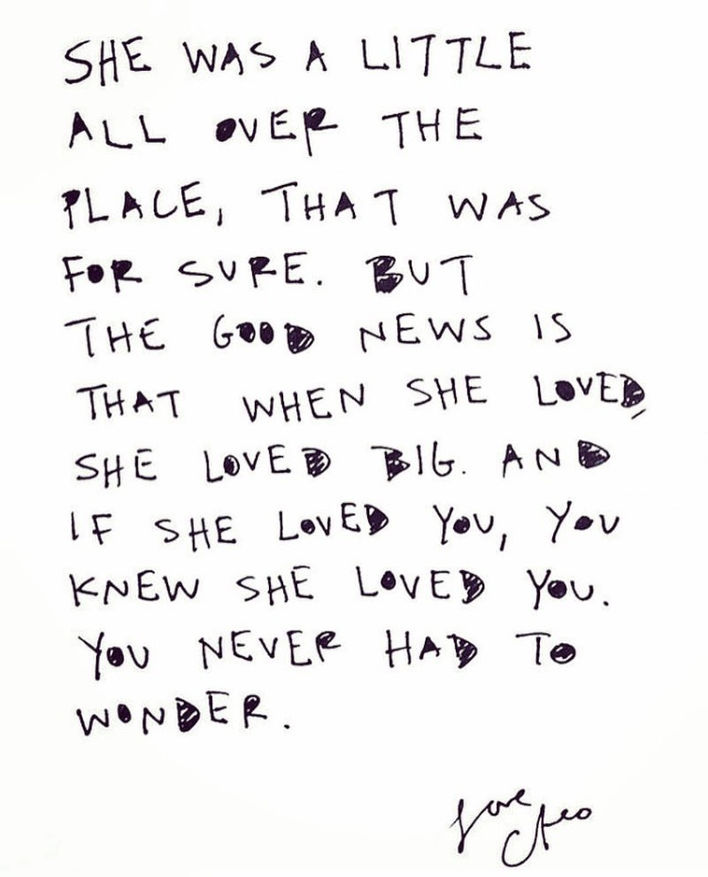 SHE WAS A LITTLE
ALL OVER THE
PLACE, THAT WAS
FOR SURE. BUT
THE GOOD NEWS IS
THAT WHEN SHE LOVED,
SHE LOVED BIG. AND
IF SHE LOVED YOU, YOU
KNEW SHE LOVED YOU.
YOU NEVER HAD TO
WONDER.
love
Cleo